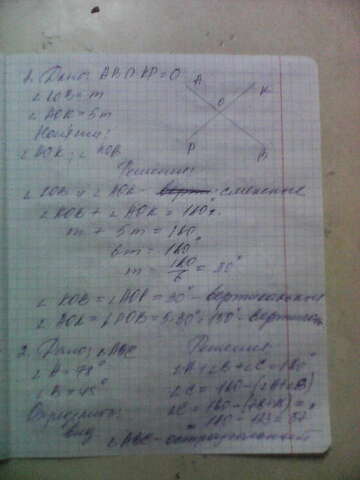 1. Дано: AB ∩ KP = O
∠KOB = m
∠AOK = 5m
Найти:
∠AOK; ∠KOB
A K O P B
Решение:
∠KOB и ∠AOK - смежные
∠KOB + ∠AOK = 180°
m + 5m = 180
6m = 180°
m = 180/6 = 30°
∠KOB = ∠AOP = 30° - вертикальные
∠AOK = ∠POB = 5·30° = 150° -
2. Дано: ∠ABC Решение
∠A = 78° ∠A + ∠B + ∠C = 180°
∠B = 45° ∠C = 180 - (∠A + ∠B)
Определить: ∠C = 180 -
вид 180 - 123 = 57
ABC - остроугольный